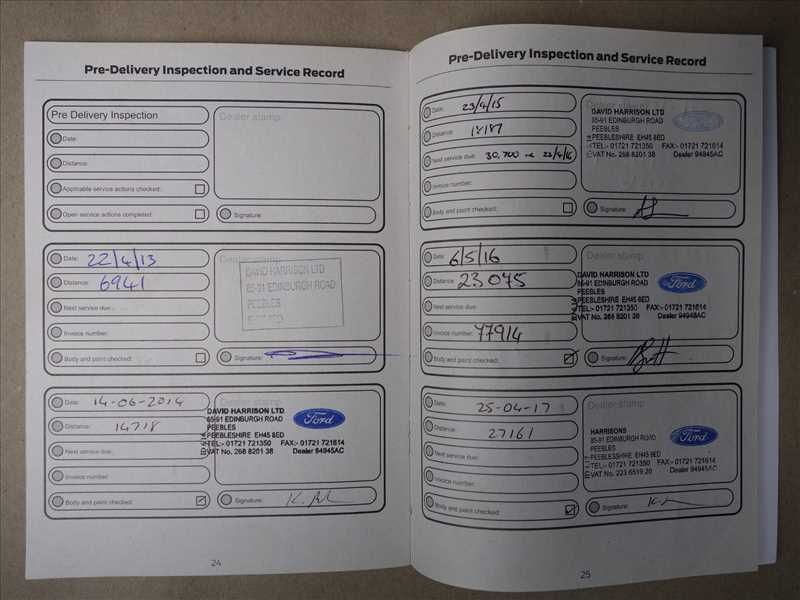 Pre-Delivery Inspection and Service Record
Pre Delivery Inspection
Dealer stamp:
Date:
Distance:
Applicable service actions checked:
Open service actions completed:
Signature:
Date: 22/4/13
Distance: 6941
Next service due:
Invoice number:
Body and paint checked:
Dealer stamp:
DAVID HARRISON LTD
85-91 EDINBURGH ROAD
PEEBLES
Signature:
Date: 14-06-2014
Distance: 14718
Next service due:
Invoice number:
Body and paint checked:
Dealer stamp:
DAVID HARRISON LTD
85-91 EDINBURGH ROAD
PEEBLES
PEEBLESHIRE EH45 8ED
TEL:- 01721 721350 FAX:- 01721 721614
VAT No. 268 8201 38 Dealer 94945AC
Ford
Signature:
24
Pre-Delivery Inspection and Service Record
Date: 23/4/15
Distance: 18187
Next service due: 30,700 23/4/16
Invoice number:
Body and paint checked:
Dealer stamp:
DAVID HARRISON LTD
85-91 EDINBURGH ROAD
PEEBLES
PEEBLESHIRE EH45 8ED
TEL:- 01721 721350 FAX:- 01721 721614
VAT No. 268 8201 38 Dealer 94945AC
Ford
Signature:
Date: 6/5/16
Distance: 23075
Next service due:
Invoice number: 77914
Body and paint checked:
Dealer stamp:
DAVID HARRISON LTD
85-91 EDINBURGH ROAD
PEEBLES
PEEBLESHIRE EH45 8ED
TEL:- 01721 721350 FAX:- 01721 721614
VAT No. 268 8201 38 Dealer 94945AC
Ford
Signature:
Date: 25-04-17
Distance: 27161
Next service due:
Invoice number:
Body and paint checked:
Dealer stamp:
HARRISONS
85-91 EDINBURGH ROAD
PEEBLESSHIRE EH45 8ED
TEL:- 01721 721350 FAX:- 01721 721614
VAT No. 223 6519 20 Dealer 94945AC
Ford
Signature:
25